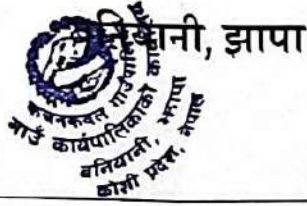 बनियानी, झापा
कचनकवल गाउँपालिका
गाउँ कार्यपालिकाको कार्यालय
बनियानी, झापा
कोशी प्रदेश, नेपाल